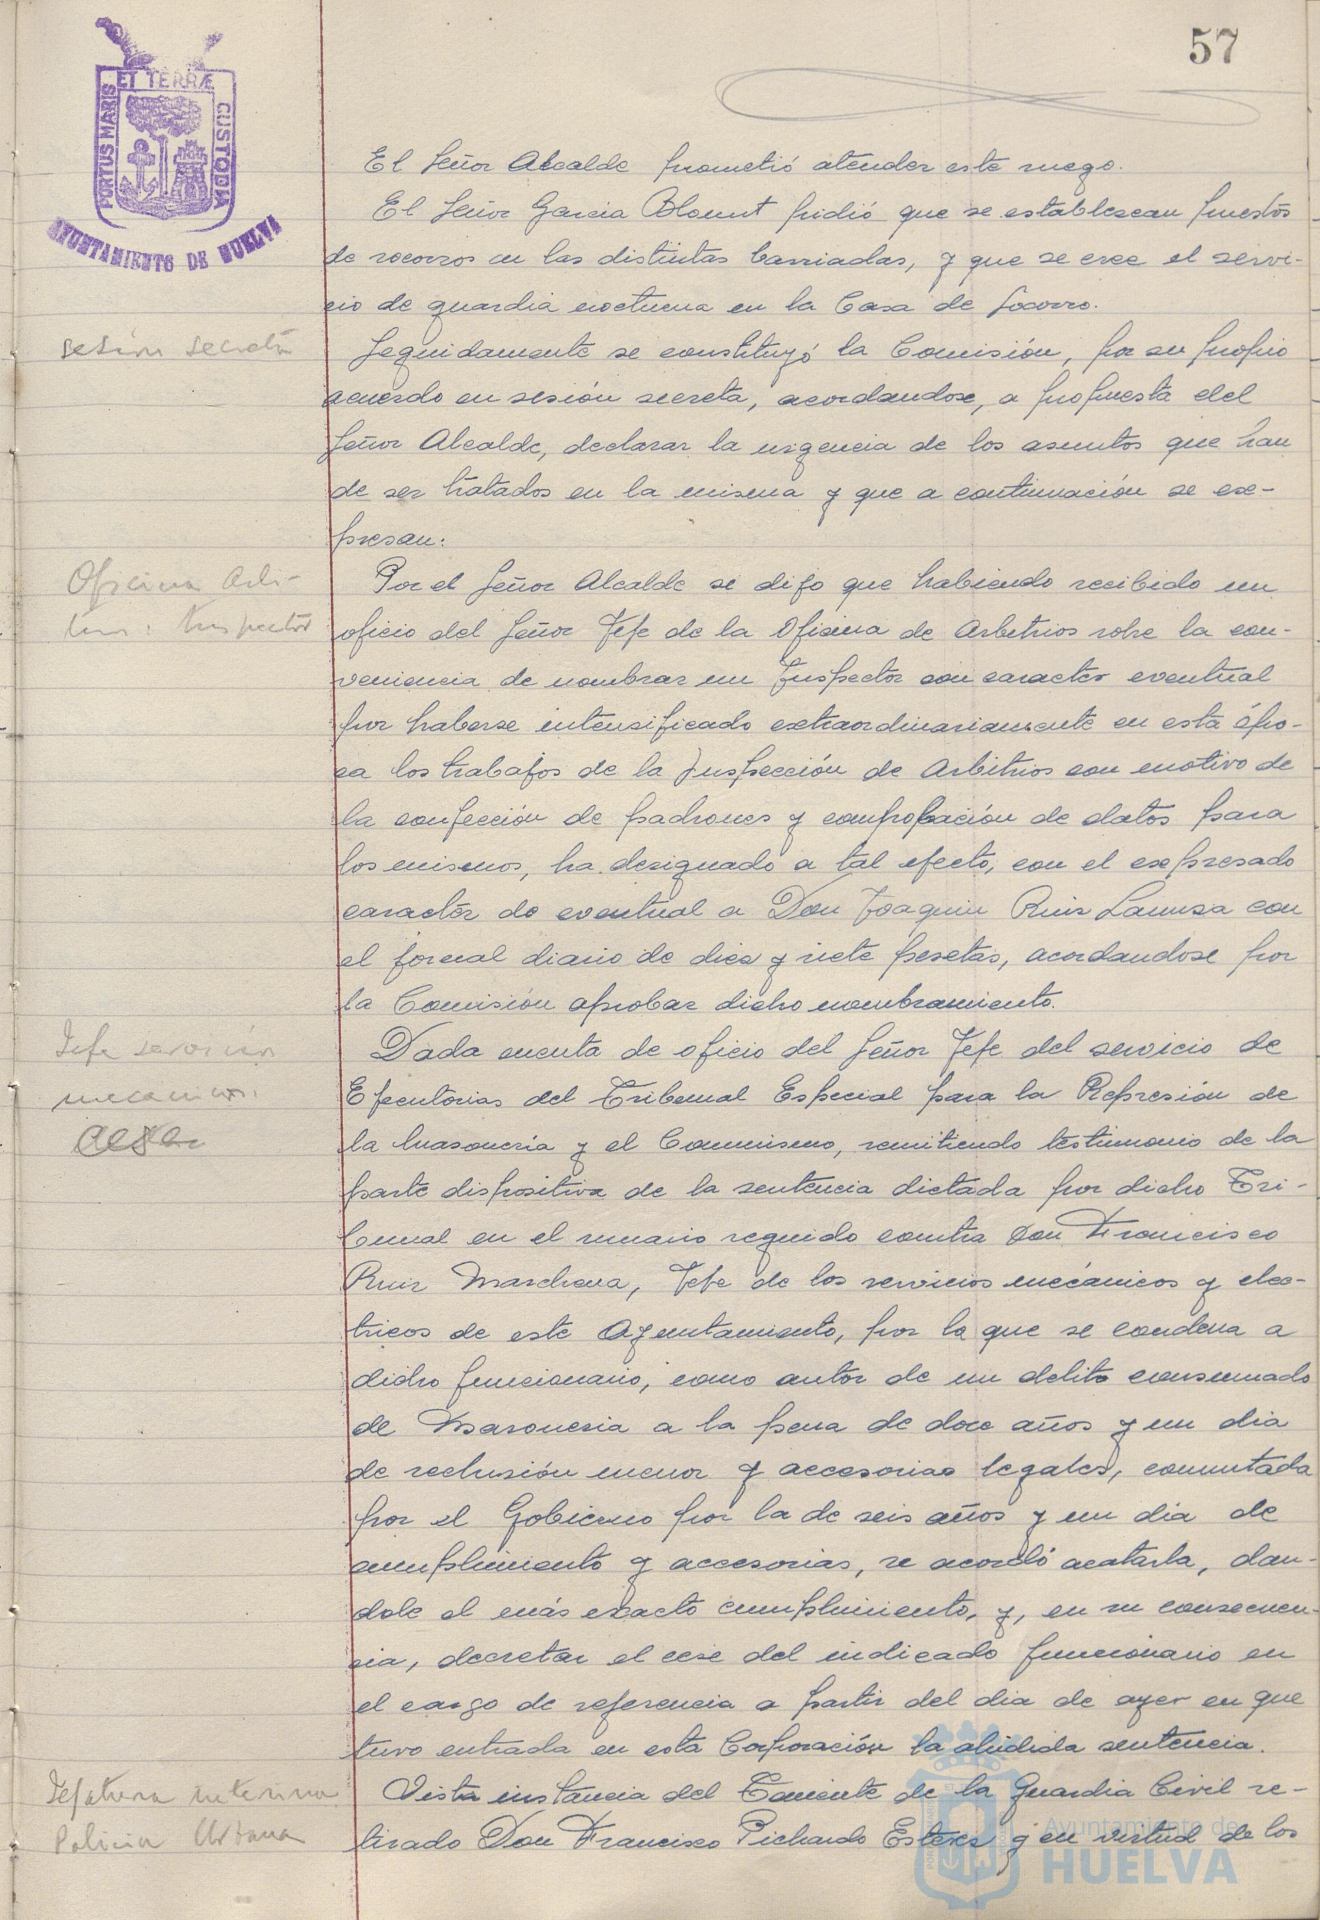 57
PORTUS MARIS ET TERRÆ CUSTODIA
AYUNTAMIENTO DE HUELVA
El Señor Alcalde prometió atender este ruego.
El Señor Garcia Blount pidió que se establezcan puestos
de socorros en las distintas barriadas, y que se cree el servi-
cio de guardia nocturna en la Casa de Socorro.
sesión secreta
Seguidamente se constituyó la Comisión, por su propio
acuerdo en sesión secreta, acordandose, a propuesta del
Señor Alcalde, declarar la urgencia de los asuntos que han
de ser tratados en la misma y que a continuación se ex-
presan:
Oficina Arbi-
trios: Inspector
Por el Señor Alcalde se dijo que habiendo recibido un
oficio del Señor Jefe de la Oficina de Arbitrios sobre la con-
veniencia de nombrar un Inspector con caracter eventual
por haberse intensificado extraordinariamente en esta épo-
ca los trabajos de la Inspección de Arbitrios con motivo de
la confección de padrones y comprobación de datos para
los mismos, ha designado a tal efecto, con el expresado
caracter de eventual a Don Joaquin Ruiz Lamusa con
el jornal diario de diez y siete pesetas, acordandose por
la Comisión aprobar dicho nombramiento.
Jefe servicios
mecanicos.
Cese
Dada cuenta de oficio del Señor Jefe del servicio de
Ejecutorias del Tribunal Especial para la Represión de
la Masonería y el Comunismo, remitiendo testimonio de la
parte dispositiva de la sentencia dictada por dicho Tri-
bunal en el sumario seguido contra Don Francisco
Ruiz Marchena, Jefe de los servicios mecánicos y elec-
tricos de este Ayuntamiento, por la que se condena a
dicho funcionario, como autor de un delito consumado
de Masoneria a la pena de doce años y un dia
de reclusión menor y accesorias legales, conmutada
por el Gobierno por la de seis años y un dia de
cumplimiento y accesorias, se acordó acatarla, dan-
dole el más exacto cumplimiento, y, en su consecuen-
cia, decretar el cese del indicado funcionario en
el cargo de referencia a partir del dia de ayer en que
tuvo entrada en esta Corporación la aludida sentencia.
Jefatura interina
Policia Urbana
Vista instancia del Teniente de la Guardia Civil re-
tirado Don Francisco Pichardo Esteves y en virtud de los
Ayuntamiento de
HUELVA